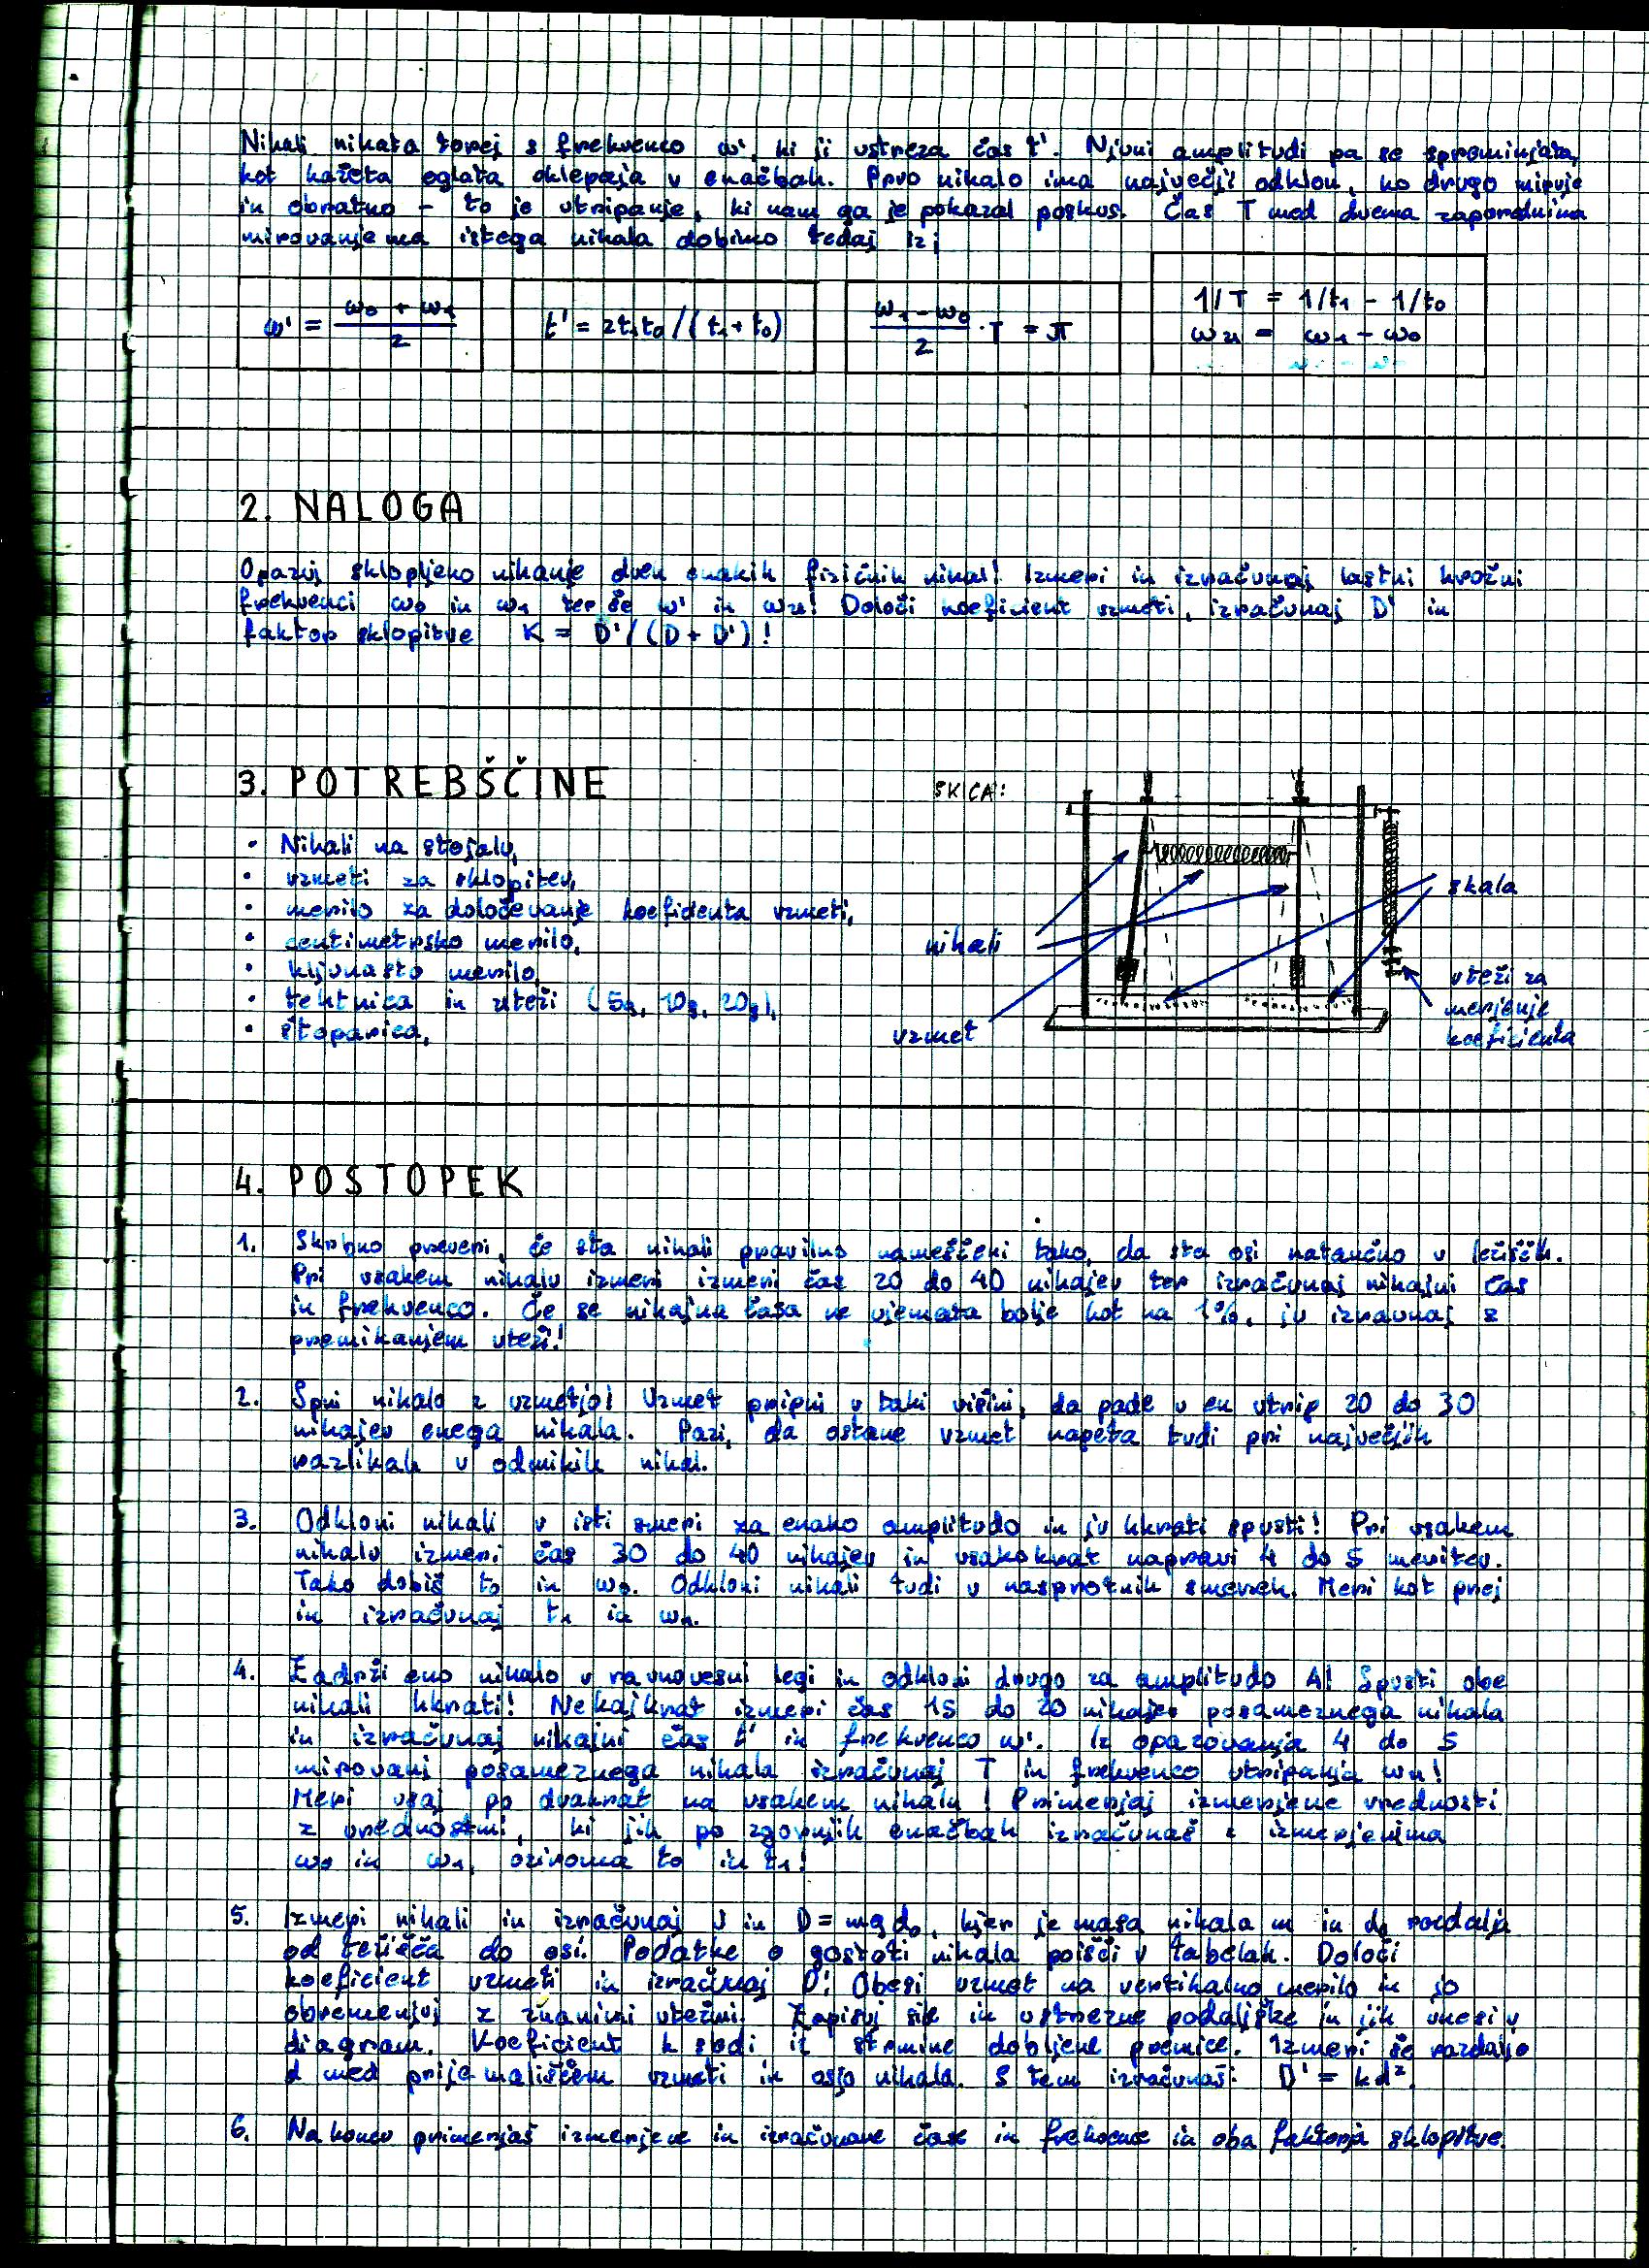 Nihali nihata torej s frekvenco ω', ki ji ustreza čas t'. Njuni amplitudi pa se spreminjata,
kot kažeta oglata oklepaja v enačbah. Prvo nihalo ima največji odklon, ko drugo miruje
in obratno - to je utripanje, ki nam ga je pokazal poskus. Čas T med dvema zaporednima
mirovanjema istega nihala dobimo tedaj iz:
ω' = (ω0 + ω1)/2
t' = 2t1t0/(t1+t0)
(ω1-ω0)/2 · T = π
1/T = 1/t1 - 1/t0
ω21 = ω1 - ω0
2. NALOGA
Opazuj sklopljeno nihanje dveh enakih fizičnih nihal! Izmeri in izračunaj lastni krožni
frekvenci ω0 in ω1 ter še ω' in ω21! Določi koeficient vzmeti, izračunaj D' in
faktor sklopitve K = D'/(D+D')!
3. POTREBŠČINE
SKICA:
• Nihali na stojalu,
• vzmeti za sklopitev,
• merilo za določevanje koeficienta vzmeti,
• centimetrsko merilo,
• kljunasto merilo,
• tehtnica in uteži (5g, 10g, 20g),
• štoparica,
skala
nihali
vzmet
uteži za
merjenje
koeficienta
4. POSTOPEK
1. Skrbno preveri, če sta nihali pravilno nameščeni tako, da sta osi natančno v ležiščih.
Pri vsakem nihalu izmeri izmeri čas 20 do 40 nihajev ter izračunaj nihajni čas
in frekvenco. Če se nihajna časa ne ujemata bolje kot na 1%, ju izravnaj z
premikanjem uteži!
2. Spni nihalo z vzmetjo! Vzmet pripni v taki višini, da pade v en utrip 20 do 30
nihajev enega nihala. Pazi, da ostane vzmet napeta tudi pri največjih
razlikah v odmikih nihal.
3. Odkloni nihali v isti smeri za enako amplitudo in ju hkrati spusti! Pri vsakem
nihalu izmeri čas 30 do 40 nihajev in vsakokrat napravi 4 do 5 meritev.
Tako dobiš t0 in ω0. Odkloni nihali tudi v nasprotnih smereh. Meri kot prej
in izračunaj t1 in ω1.
4. Zadrži eno nihalo v ravnovesni legi in odkloni drugo za amplitudo A! Spusti obe
nihali hkrati! Nekajkrat izmeri čas 15 do 20 nihajev posameznega nihala
in izračunaj nihajni čas t' in frekvenco ω'. Iz opazovanja 4 do 5
mirovanj posameznega nihala izračunaj T in frekvenco utripanja ω21!
Meri vsaj po dvakrat na vsakem nihalu! Primerjaj izmerjene vrednosti
z vrednostmi, ki jih po zgornjih enačbah izračunaš z izmerjenima
ω0 in ω1, oziroma t0 in t1!
5. Izmeri nihali in izračunaj J in D = mgd0, kjer je masa nihala m in d0 razdalja
od težišča do osi. Podatke o gostoti nihala poišči v tabelah. Določi
koeficient vzmeti in izračunaj D'! Obesi vzmet na vertikalno merilo in jo
obremenjuj z znanimi utežmi. Zapisuj sile in ustrezne podaljške in jih vnesi v
diagram. Koeficient k sledi iz strmine dobljene premice. Izmeri še razdaljo
d med prijemališčem vzmeti in osjo nihala. S tem izračunaš: D' = kd².
6. Na koncu primerjaš izmerjene in izračunane čase in frekvence in oba faktorja sklopitve.